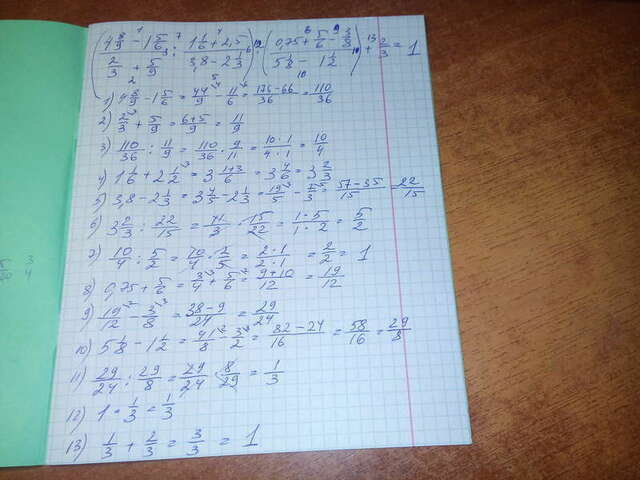 ((4 8/9 - 1 5/6)/(2/3 + 5/9) : (1 1/6 + 2,5)/(3,8 - 2 1/3)) · ((0,75 + 5/6 - 3/8)/(5 1/8 - 1 1/2)) + 2/3 = 1
1) 4 8/9 - 1 5/6 = 44/9 - 11/6 = (176-66)/36 = 110/36
2) 2/3 + 5/9 = (6+5)/9 = 11/9
3) 110/36 : 11/9 = 110/36 · 9/11 = (10·1)/(4·1) = 10/4
4) 1 1/6 + 2 1/2 = 3 (1+3)/6 = 3 4/6 = 3 2/3
5) 3,8 - 2 1/3 = 3 4/5 - 2 1/3 = 19/5 - 7/3 = (57-35)/15 = 22/15
6) 3 2/3 : 22/15 = 11/3 · 15/22 = (1·5)/(1·2) = 5/2
7) 10/4 : 5/2 = 10/4 · 2/5 = (2·1)/(2·1) = 2/2 = 1
8) 0,75 + 5/6 = 3/4 + 5/6 = (9+10)/12 = 19/12
9) 19/12 - 3/8 = (38-9)/24 = 29/24
10) 5 1/8 - 1 1/2 = 41/8 - 3/2 = (82-24)/16 = 58/16 = 29/8
11) 29/24 : 29/8 = 29/24 · 8/29 = 1/3
12) 1 · 1/3 = 1/3
13) 1/3 + 2/3 = 3/3 = 1